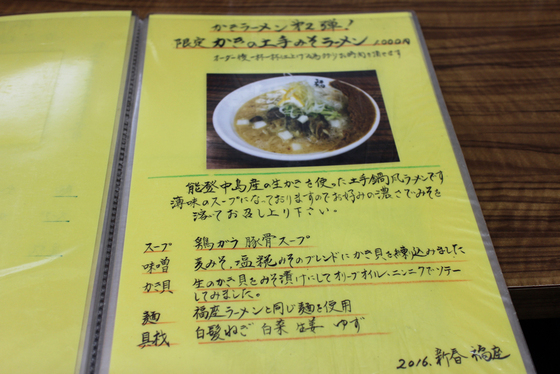 かきラーメン第2弾！
限定 かきの土手みそラーメン 1,000円
能登中島産の生かきを使った土手鍋風ラーメンです
薄味のスープになっておりますのでお好みの濃さでみそを
溶いてお召し上り下さい。
スープ 鶏ガラ 豚骨スープ
味噌 麦みそ、塩糀みそのブレンドにかき貝を練込みました
かき貝 生のかき貝をみそ漬けにしてオリーブオイル、ニンニクでソテー
してみました。
麺 福座ラーメンと同じ麺を使用
具材 白髪ねぎ 白菜 生姜 ゆず
2016.新春 福座